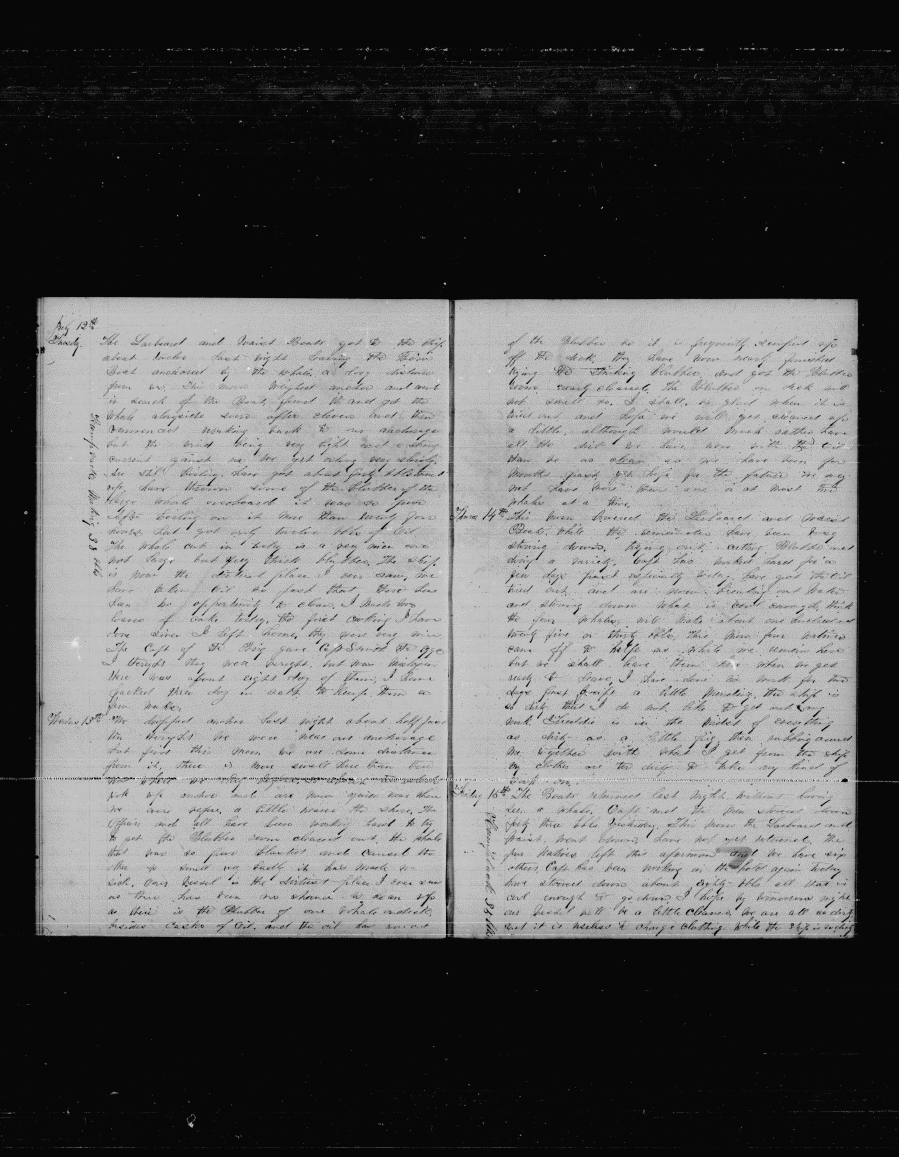 12th
Tuesdy The Larboard and Waist Boats got to the ship
about twelve last night leaving the Bow
Boat anchored by the whale, a long distance
from us. This morn weighed anchor and went
in search of the Boat, found it and got the
whale alongside soon after eleven and then
commenced working back to our anchorage
but the wind being very light and a strong
current against us we get along very slowly.
are still boiling, have got about forty bbls
up, have thrown some of the Blubber of the
large whale overboard it was so poor
after boiling on it more than twenty four
hours, but got only twelve bbls of Oil.
The whale cut in today is a very nice one
not large but very thick blubber. The ship
is now the dirtiest place I ever saw, we
have taken Oil so fast that there has
been no opportunity to clean. I made two
loaves of cake today, the first cooking I have
done since I left home, they were very nice
The Capt of the Brig gave Capt some eggs
I thought they were bought, but was
there was about eight dozen of them, I have
packed three doz in salt, to keep them a
few weeks.
Wednes 13th We dropped anchor last night about half past
ten thought we were near our anchorage
but find this morn we are some distance
from it, there is more swell here than there
was where we lay before, so
took up anchor and are now quiet near where
we were before, a little nearer the shore. The
Officers and all have been working hard to try
to get the Blubber room cleared out. the whale
that was so poor blasted and caused the
ship to smell so badly it has made me
sick. Our Vessel is the dirtiest place I ever saw
as there has been no chance to clean up
as there is the Blubber of one whale on deck,
besides Casks of Oil, and the oil
of the Blubber so it is frequently
off the deck, they have now nearly finished
trying the stinking Blubber, and got the Blubber
room nearly cleaned, The Blubber on deck will
not smell so, I shall be glad when it is
tried out, and hope we will get cleaned up
a little, although would much rather have
all the dirt we have now with the oil
than be as clean as we have been for
months past, yet hope for the future we may
not have more than one or at most two
whales at a time.
Thurs 14th This morn lowered the Larboard and Waist
Boats, while the remainder have been busy
stowing down, trying out, cutting Blubber and
doing a variety, Capt has worked hard for a
few days past especially today, have got the Oil
tried out and are now breaking out Water
and stowing down what is cool enough, think
the four whales will make about one hundred and
twenty five or thirty bbls. This morn four natives
came off to help us while we remain here
but we shall leave them here when we get
ready to leave, I have done no work for two
days past except a little mending, the ship is
so dirty that I do not like to get out any
work Freddie is in the midst of everything
as dirty as a little pig, then rubbing around
me together with what I get from the ship
my clothes are too dirty to take any kind of
work on.
Friday 15th The Boats returned last night without having
seen a whale, Capt and the men stowed down
forty three bbls yesterday. This morn the Larboard and
Waist, went down, have not yet returned. The
four Natives left this afternoon and we have six
others, Capt has been working in the hold again today
have stowed down about eighty bbls all that is
cool enough to go down, I hope by tomorrow night
our Vessel will be a little cleaner, we are all so dirty
but it is useless to change clothing while the ship is so dirty